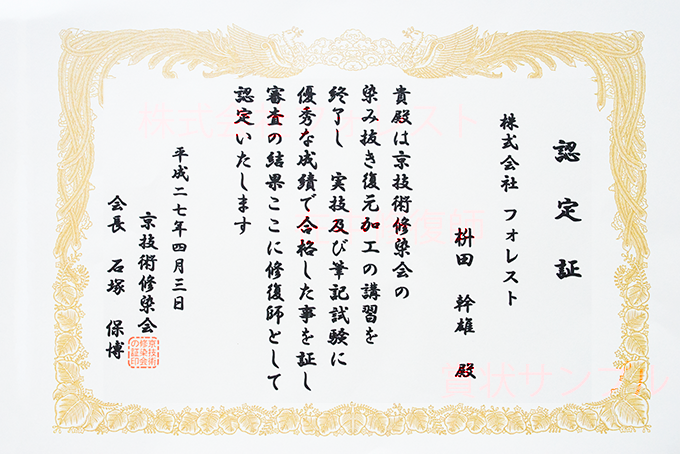 認定証
株式会社 フォレスト
枡田 幹雄 殿
貴殿は京技術修染会の
染み抜き復元加工の講習を
終了し 実技及び筆記試験に
優秀な成績で合格した事を証し
審査の結果ここに修復師として
認定いたします
平成二七年四月三日
京技術修染会
会長 石塚 保博
京技術
修染会
の証印
株式会社フォレスト
賞状サンプル